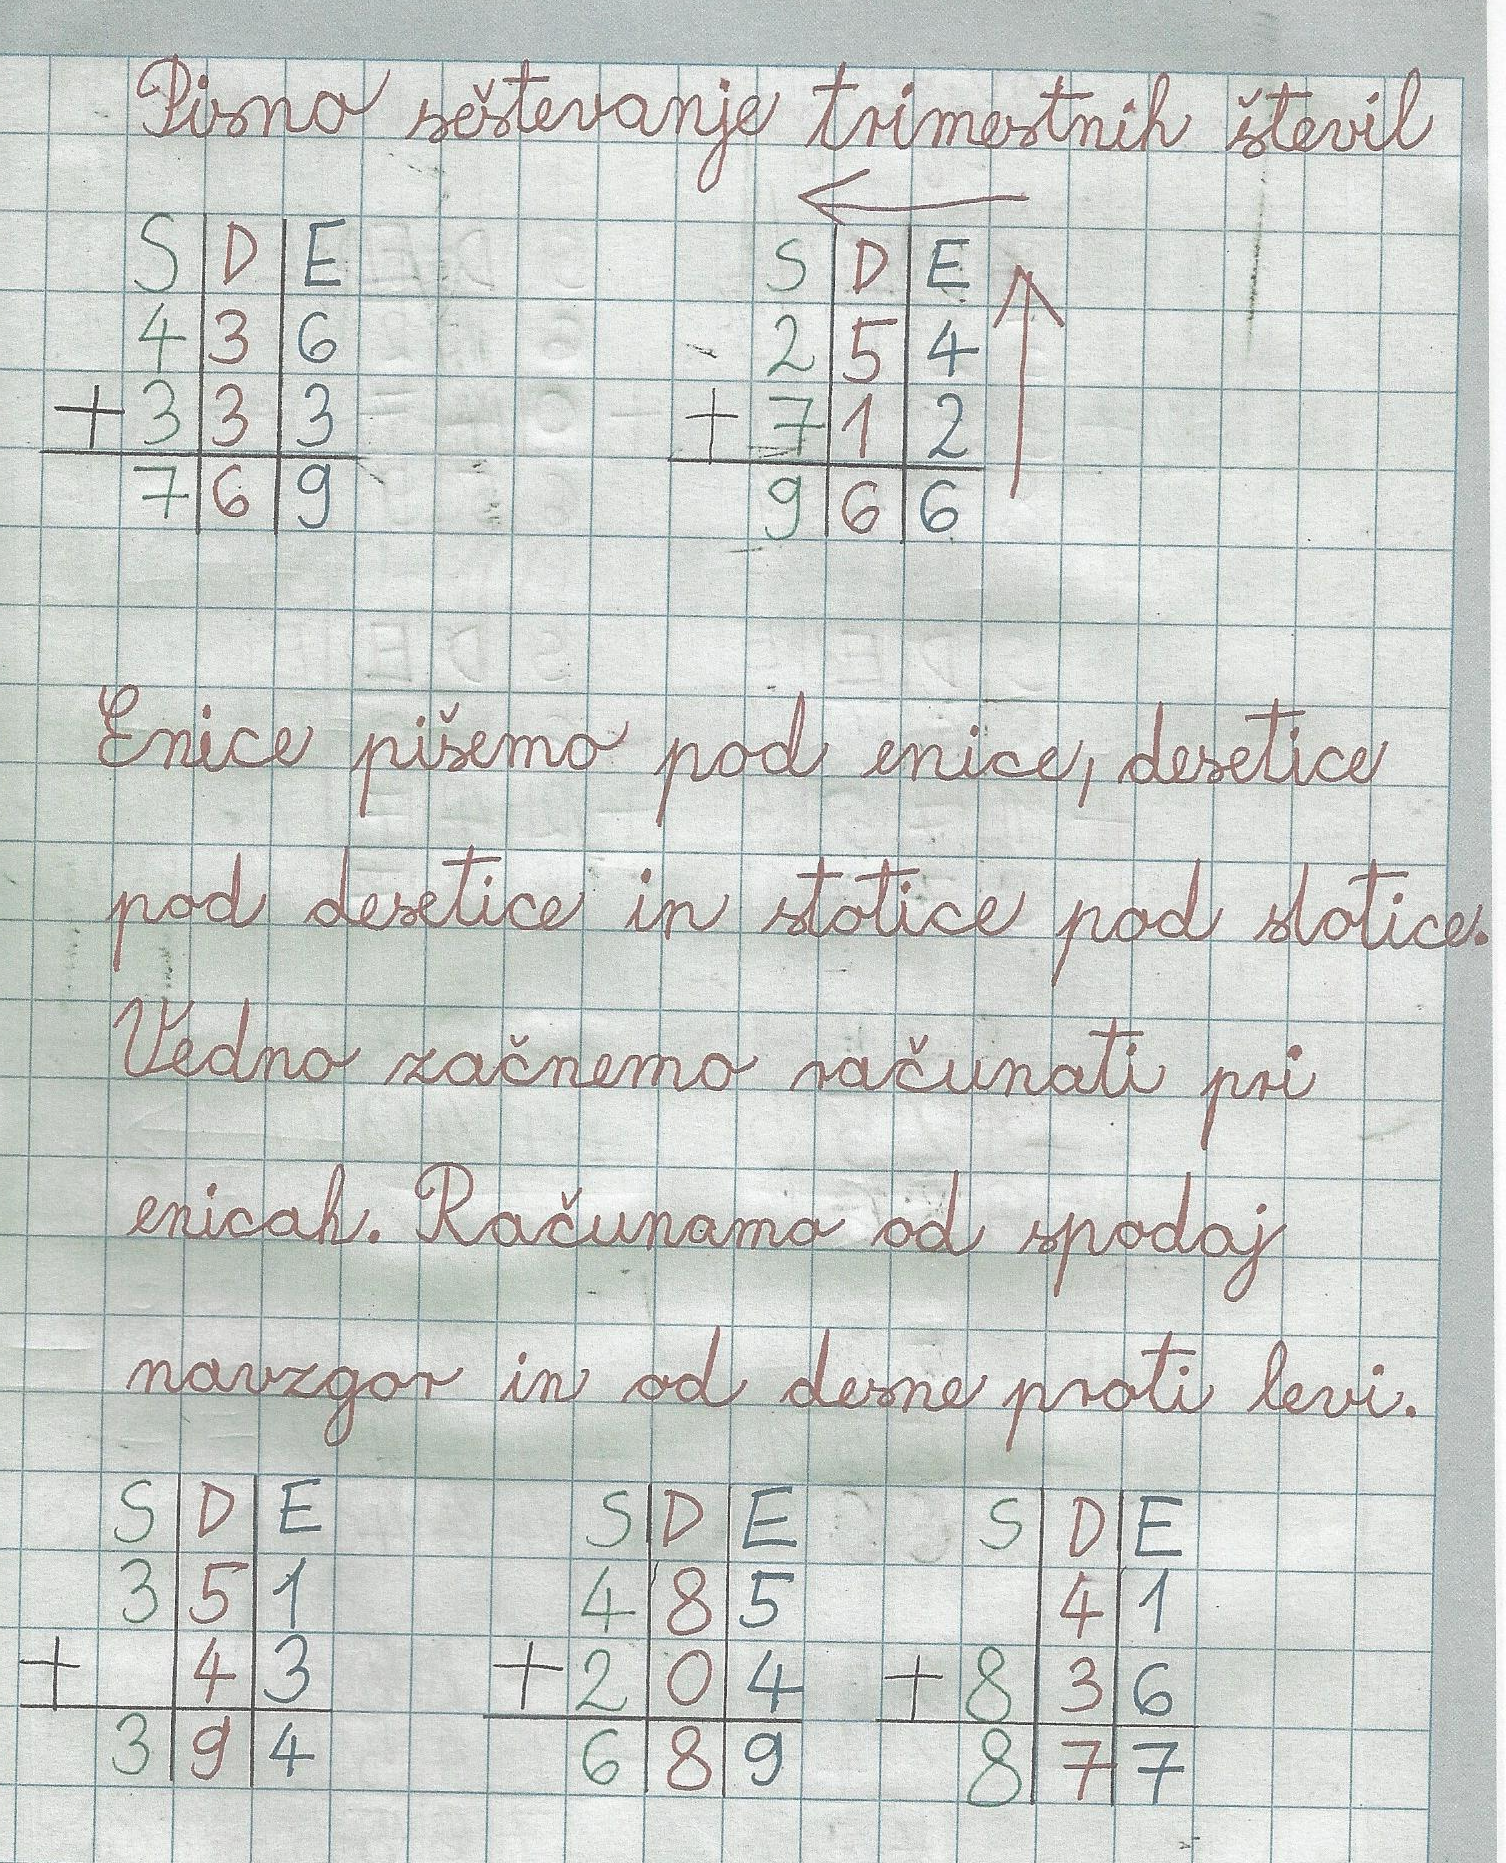 Pisno seštevanje trimestnih števil
S D E   S D E
4 3 6   2 5 4
+ 3 3 3   + 7 1 2
7 6 9   9 6 6
Enice pišemo pod enice, desetice
pod desetice in stotice pod stotice.
Vedno začnemo računati pri
enicah. Računamo od spodaj
navzgor in od desne proti levi.
S D E   S D E   S D E
3 5 1   4 8 5   4 1
+ 4 3   + 2 0 4   + 8 3 6
3 9 4   6 8 9   8 7 7